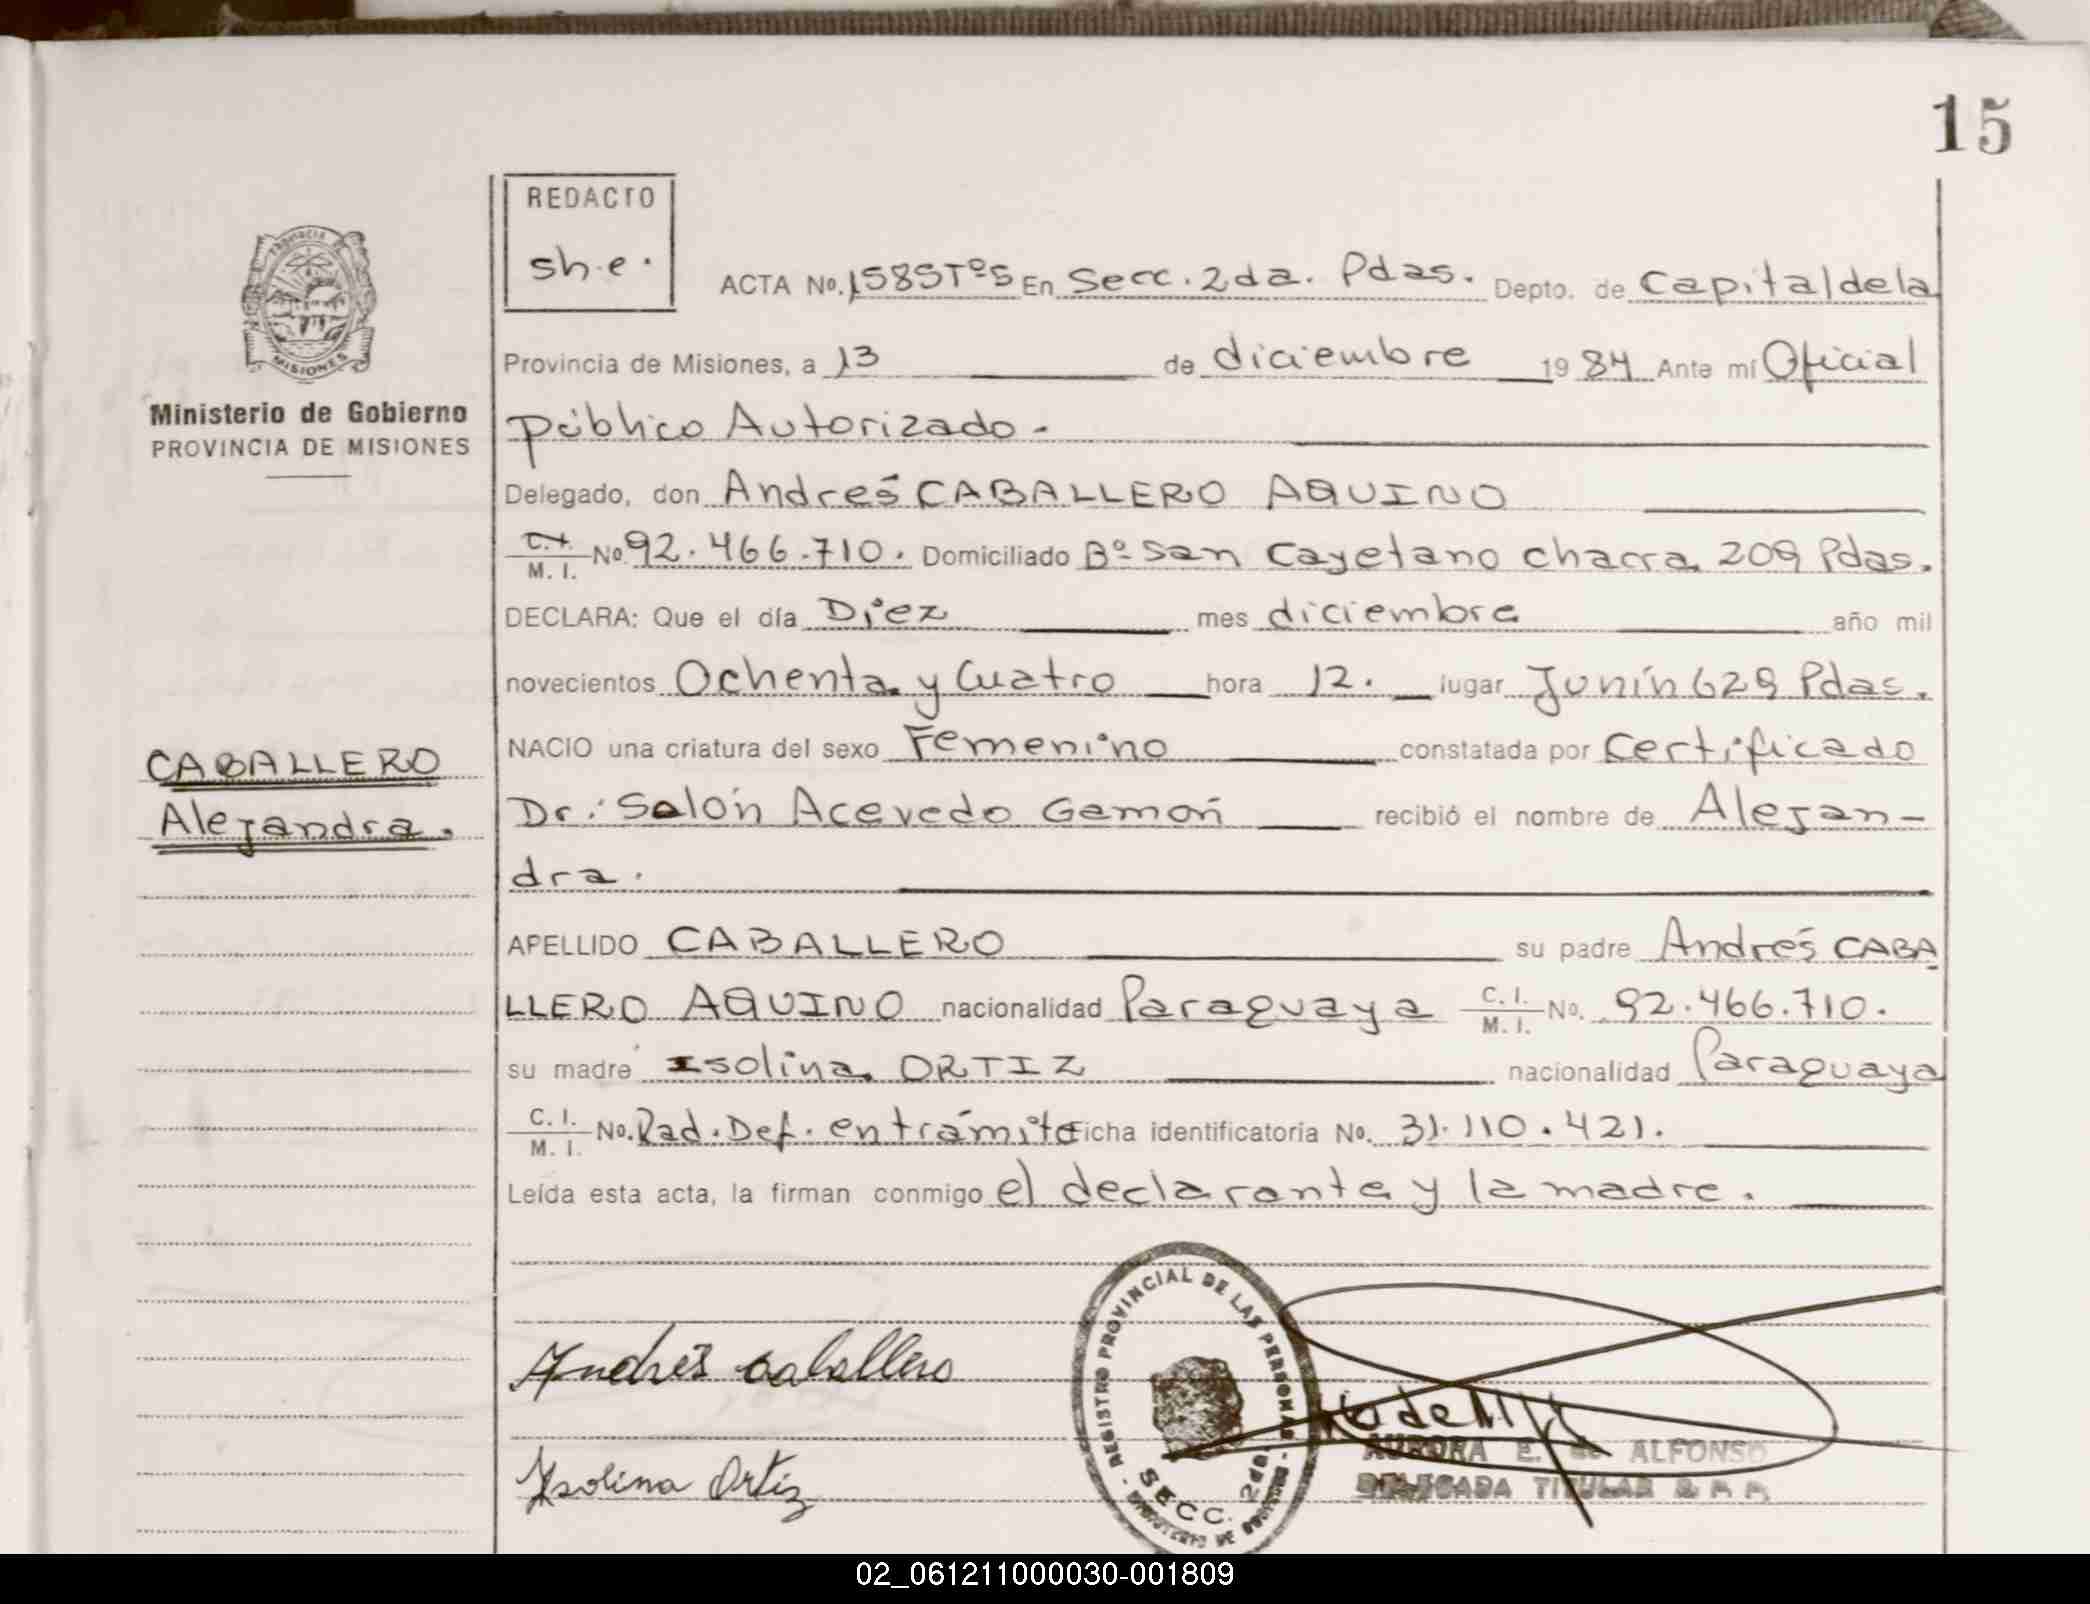 15
REDACTO
sh.e.
PROVINCIA DE
MISIONES
Ministerio de Gobierno
PROVINCIA DE MISIONES
ACTA No. 1585Tº5 En Secc. 2da. Pdas. Depto. de Capital de la
Provincia de Misiones, a 13 de diciembre 1984 Ante mí Oficial
público Autorizado.
Delegado, don Andrés CABALLERO AQUINO
C.I. M.I. No. 92.466.710. Domiciliado Bº San Cayetano chacra 209 Pdas.
DECLARA: Que el día Diez mes diciembre año mil
novecientos Ochenta y Cuatro hora 12. lugar Junín 629 Pdas.
NACIO una criatura del sexo Femenino constatada por Certificado
Dr: Solón Acevedo Gamón recibió el nombre de Alejan-
dra.
CABALLERO
Alejandra.
APELLIDO CABALLERO su padre Andrés CABA
LLERO AQUINO nacionalidad Paraguaya C.I. M.I. No. 92.466.710.
su madre Isolina ORTIZ nacionalidad Paraguaya
C.I. M.I. No. Rad. Def. en trámite Ficha identificatoria No. 31.110.421.
Leída esta acta, la firman conmigo el declarante y la madre.
Andrés Caballero
Isolina Ortiz
REGISTRO PROVINCIAL DE LAS PERSONAS - MINISTERIO DE GOBIERNO -
SECC. 2da.
AURORA E. de ALFONSO
DELEGADA TITULAR
02_061211000030-001809